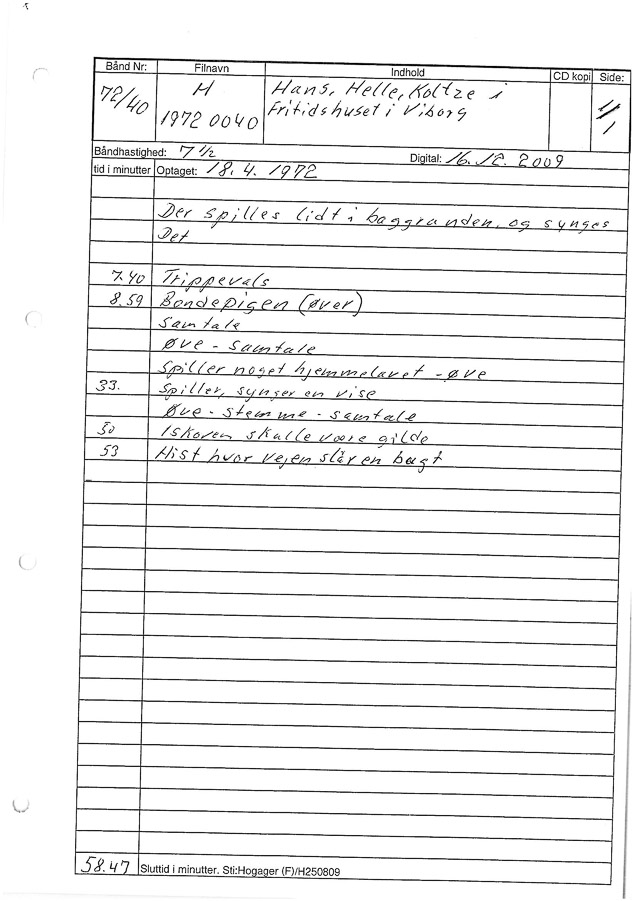 Bånd Nr: Filnavn Indhold CD kopi Side:
72/40 H Hans, Helle, Koltze i 1/1
1972 0040 Fritidshuset i Viborg
Båndhastighed: 7 1/2 Digital: 16.12.2009
tid i minutter Optaget: 18.4.1972
Der spilles lidt i baggrunden, og synges
Det
7.40 Trippevals
8.59 Bondepigen (øver)
Samtale
Øve - samtale
Spiller noget hjemmelavet - øve
33. Spiller, synger en vise
Øve - stemme - samtale
50 I skoven skulle være gilde
53 Hist hvor vejen slår en bugt
58.47 Sluttid i minutter. Sti:Hogager (F)/H250809